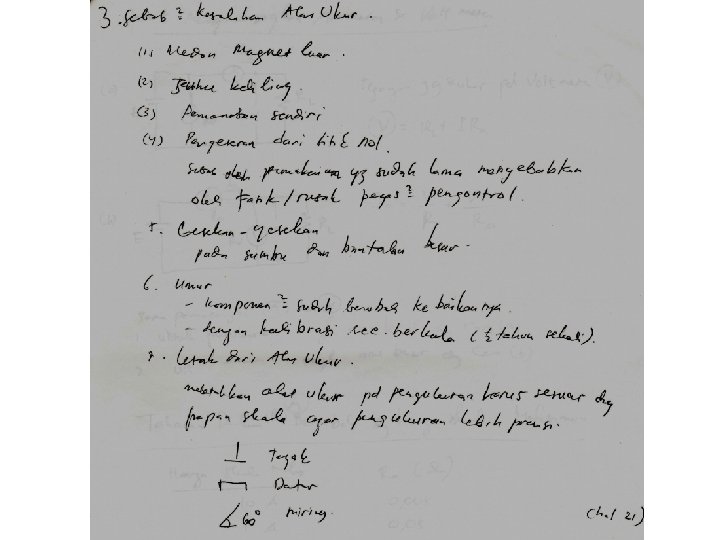 3. Sebab² Kesalahan Alat Ukur.
(1) Medan Magnet luar.
(2) keliling.
(3) Pemanasan sendiri
(4) Pergeseran dari titik nol.
Sebab oleh pemakaian yg sudah lama menyebabkan
oleh /rusak pegas² pengontrol.
5. Gesekan-gesekan
pada sumbu dan bantalan besar.
6. Umur
- komponen² sudah berubah kebaikannya.
- dengan kalibrasi sec. berkala (½ tahun sekali).
7. Letak dari Alat Ukur.
meletakkan alat ukur pd pengukuran harus sesuai dng
papan skala agar pengukuran lebih presisi.
Tegak
Datar
60° miring.
(hal 21)